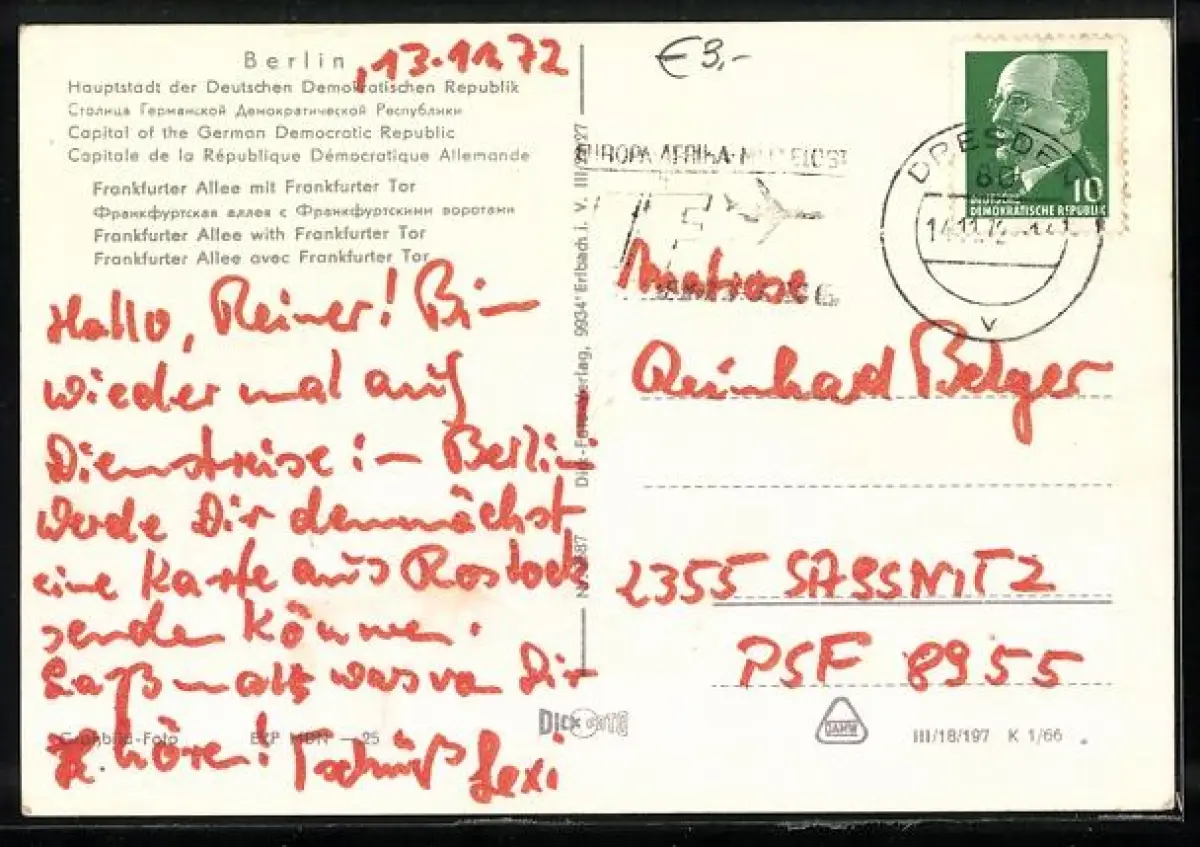 Berlin
, 13.11.72
Hauptstadt der Deutschen Demokratischen Republik
Столица Германской Демократической Республики
Capital of the German Democratic Republic
Capitale de la République Démocratique Allemande
Frankfurter Allee mit Frankfurter Tor
Франкфуртская аллея с Франкфуртскими воротами
Frankfurter Allee with Frankfurter Tor
Frankfurter Allee avec Frankfurter Tor
Hallo, Reiner! Bi–
wieder mal auf
Dienstreise! – Berlin!
Werde Dir demnächst
eine Karte aus Rostock
senden können.
Laß mal was von Dir
hören! Tschüß Lexi
Grünbild-Foto EVP MDN —.25
Dick-Foto-Verlag, 9934 Erlbach i. V. III
€3,-
EUROPA AFRIKA
DRESDEN
80
14.11.72
V
10
DEUTSCHE
DEMOKRATISCHE REPUBLIK
Matrose
Reinhard Belger
2355 SASSNITZ
PSF 8955
DICK FOTO
III/18/197 K 1/66